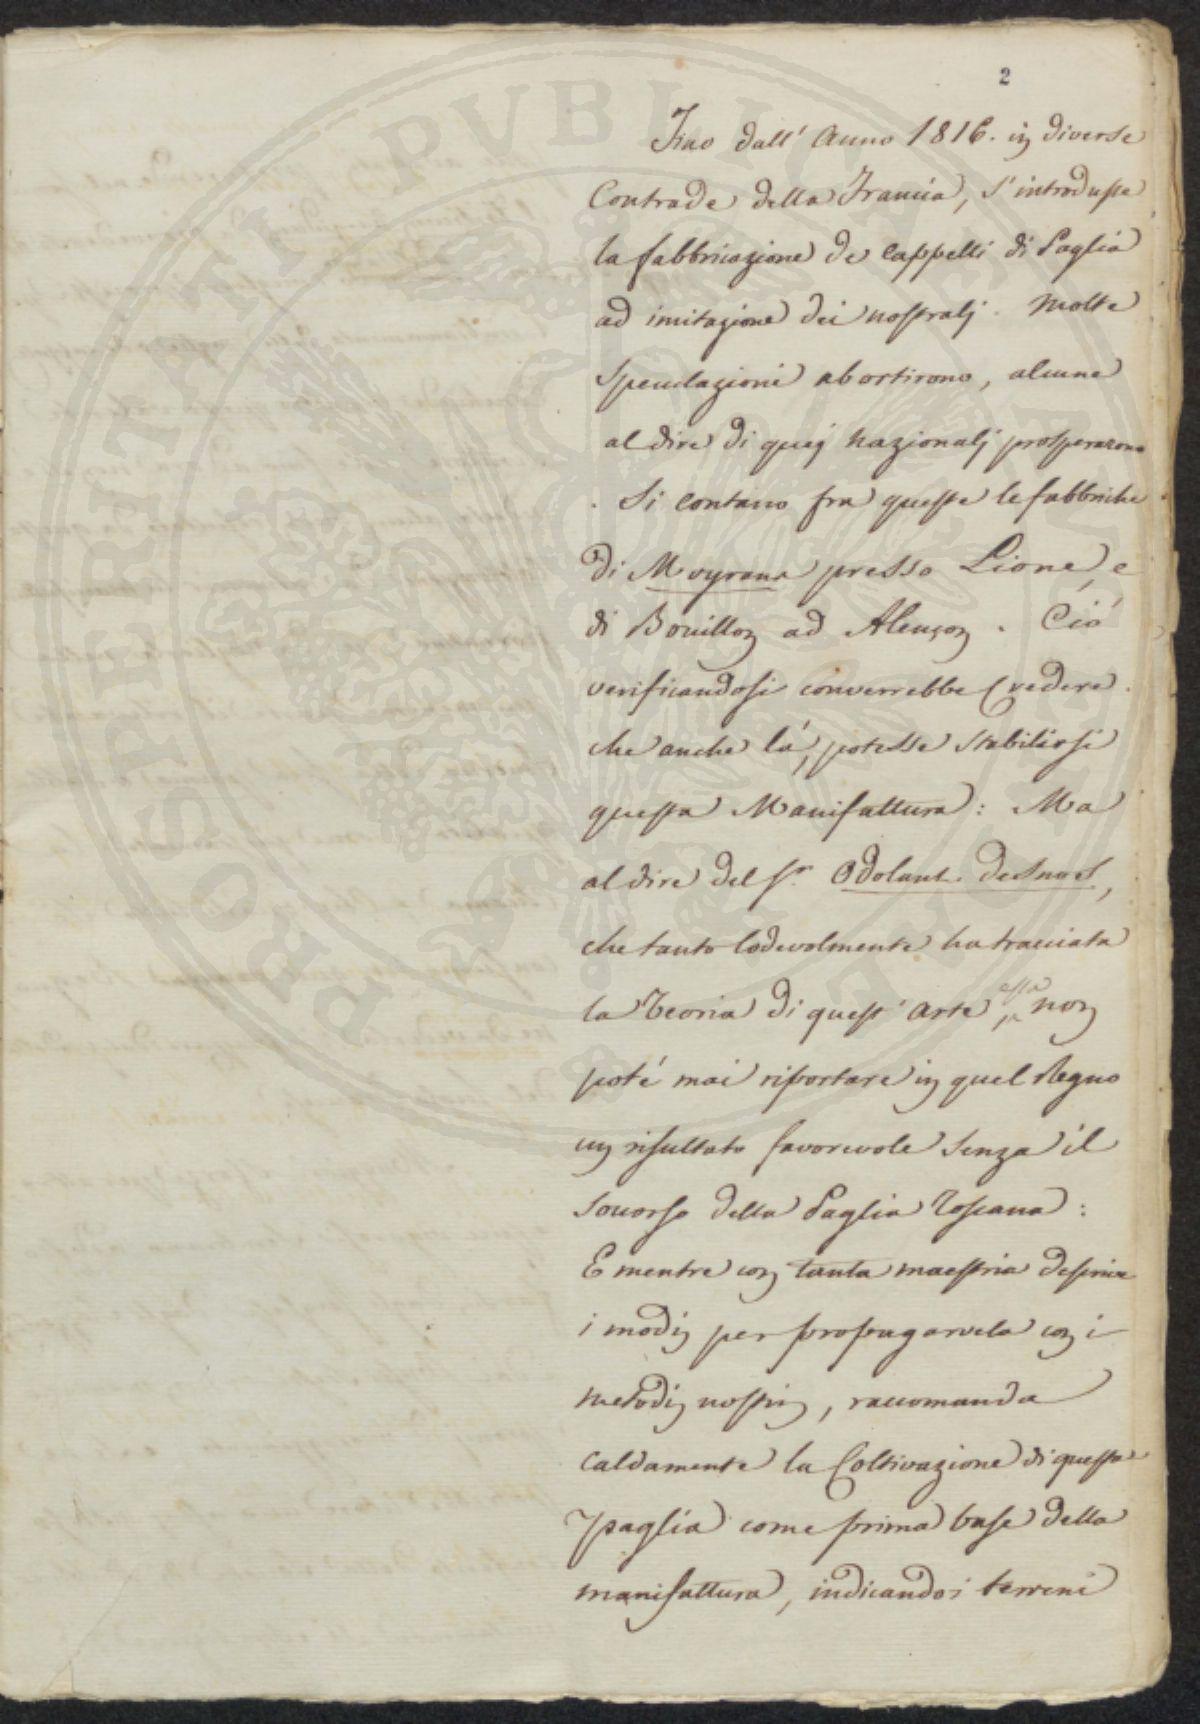 2
Fino dall' Anno 1816. in diverse
Contrade della Francia, s'introdusse
la fabbricazione de cappelli di Paglia
ad imitazione dei nostralj. Molte
Speculazioni abortirono, alcune
al dire di quej Nazionalj prosperarono
. Si contano fra queste le fabbriche
di Moyrana presso Lione, e
di Bouillon ad Alençon. Ció
verificandosi converrebbe Credere
che anche lá, potesse Stabilirsi
questa Manifattura: Ma
al dire del Sr. Odolant. Desnos,
che tanto lodevolmente ha tracciata
la Teoria di quest' arte, essa non
poté mai riportare in quel Regno
un risultato favorevole Senza il
Soccorso della Paglia Toscana:
E mentre con tanta maestria descrive
i modij per propagarvela con i
metodij nostrij, raccomanda
caldamente la Coltivazione di questa
paglia come prima base della
manifattura, indicando i terreni
PROSPERITATI PVBLICAE AVGENDAE